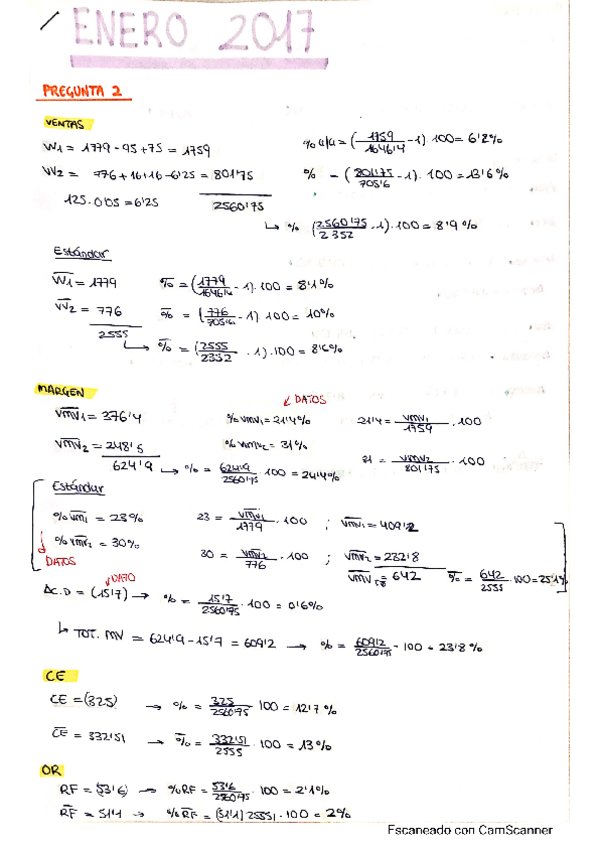 ENERO 2017
PREGUNTA 2
VENTAS
W1 = 1779 - 95 + 75 = 1759
% a/a = (1759/1646'4 - 1) · 100 = 6'8%
W2 = 776 + 16 + 16 - 6'25 = 801'75
% = (801'75/705'6 - 1) · 100 = 13'6%
125 · 0'05 = 6'25
2560'75
↳ % (2560'75/2352 - 1) · 100 = 8'9%
Estándar
W1 = 1779
% = (1779/1646'4 - 1) · 100 = 8'1%
W2 = 776
% = (776/705'6 - 1) · 100 = 10%
2555
↳ % = (2555/2352 - 1) · 100 = 8'6%
MARGEN
↙ DATOS
vmv1 = 376'4
% vmv1 = 21'4%
21'4 = vmv1/1759 · 100
vmv2 = 248'5
% vmv2 = 31%
31 = vmv2/801'75 · 100
624'9 ↳ % = 624'9/2560'75 · 100 = 24'4%
Estándar
% vm1 = 23%
23 = vmv1/1779 · 100 ; vmv1 = 409'2
% vmv2 = 30%
30 = vmv2/776 · 100 ; vmv2 = 232'8
DATOS
= 642
% = 642/2555 · 100 = 25'1%
DATO
Δc.D = (15'7) → % = 15'7/2560'75 · 100 = 0'6%
↳ TOT. MV = 624'9 - 15'7 = 609'2 → % = 609'2/2560'75 · 100 = 23'8%
CE
CE = (325) → % = 325/2560'75 · 100 = 12'7%
CE = 332'51 → % = 332'51/2555 · 100 = 13%
OR
RF = (53'6) → % RF = 53'6/2560'75 · 100 = 2'1%
RF = 51'4 → % RF = (51'4) 2555 · 100 = 2%
Escaneado con CamScanner